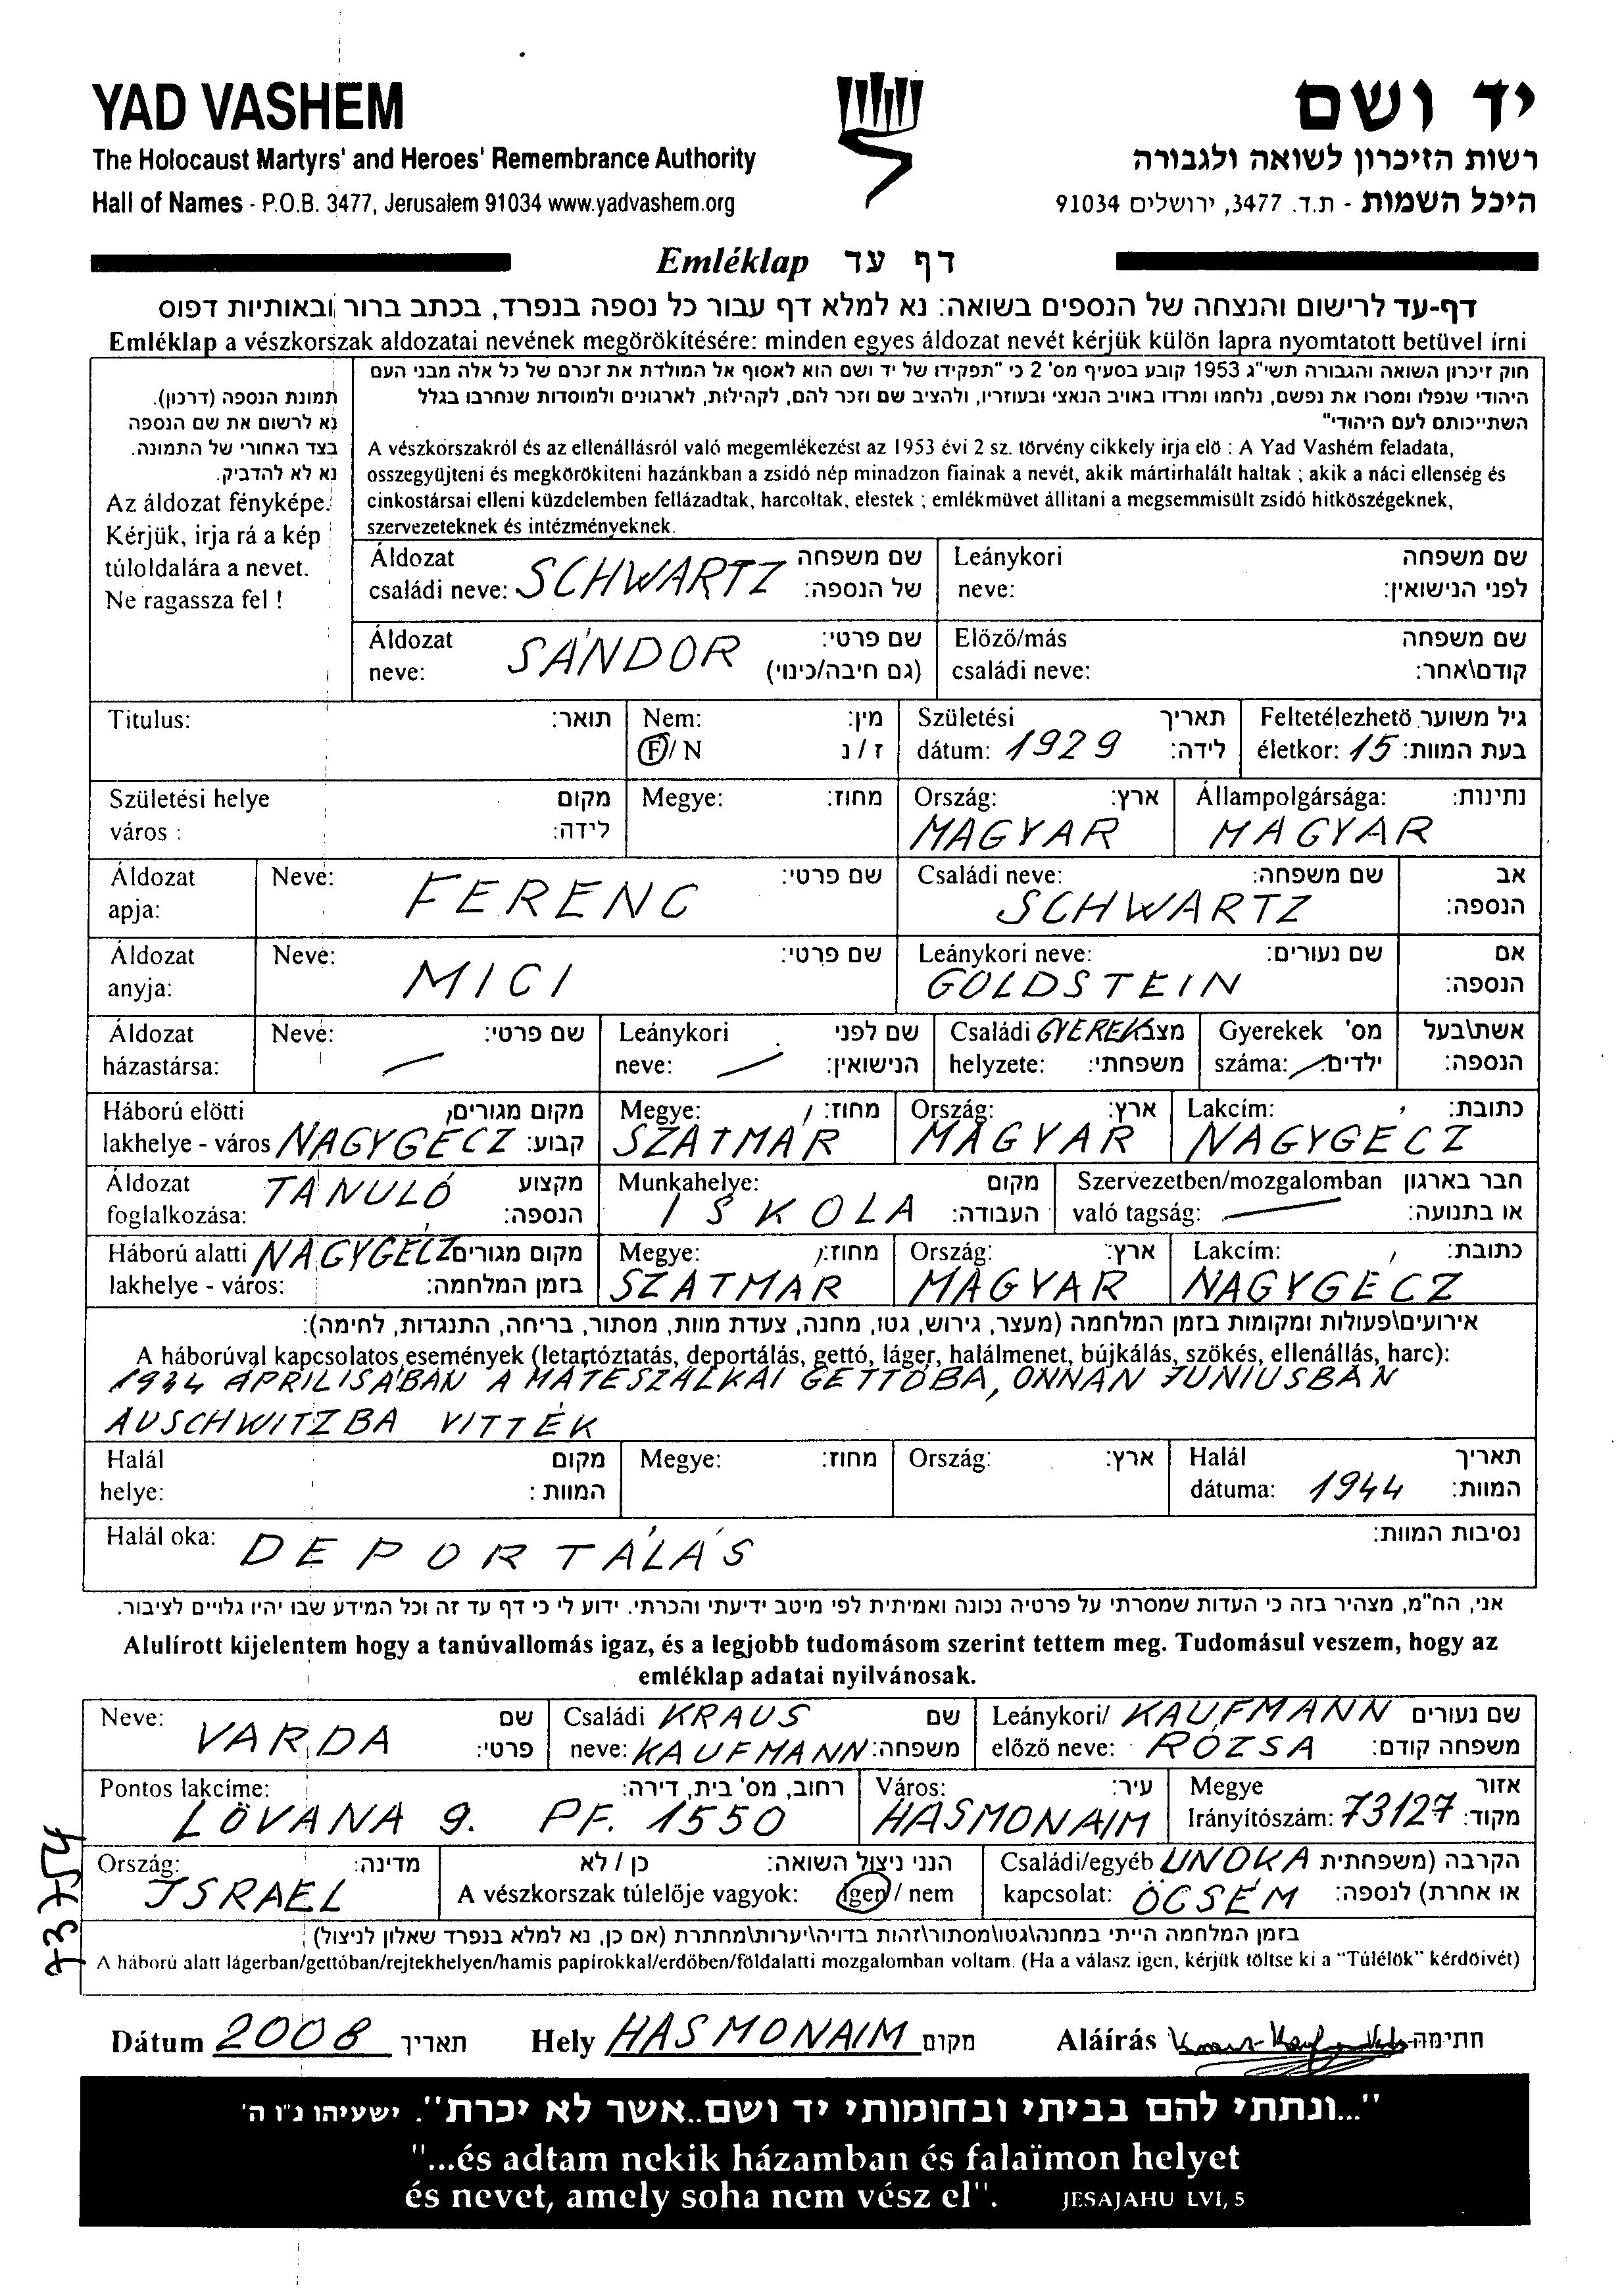 YAD VASHEM
יד ושם
The Holocaust Martyrs' and Heroes' Remembrance Authority
רשות הזיכרון לשואה ולגבורה
Hall of Names - P.O.B. 3477, Jerusalem 91034 www.yadvashem.org
היכל השמות - ת.ד. 3477, ירושלים 91034
Emléklap דף עד
דף-עד לרישום והנצחה של הנספים בשואה: נא למלא דף עבור כל נספה בנפרד, בכתב ברור ובאותיות דפוס
Emléklap a vészkorszak aldozatai nevének megörökítésére: minden egyes áldozat nevét kérjük külön lapra nyomtatott betüvel írni
תמונת הנספה (דרכון).
נא לרשום את שם הנספה
בצד האחורי של התמונה.
נא לא להדביק.
Az áldozat fényképe.
Kérjük, irja rá a kép
túloldalára a nevet.
Ne ragassza fel !
חוק זיכרון השואה והגבורה תשי"ג 1953 קובע בסעיף מס' 2 כי "תפקידו של יד ושם הוא לאסוף אל המולדת את זכרם של כל אלה מבני העם
היהודי שנפלו ומסרו את נפשם, נלחמו ומרדו באויב הנאצי ובעוזריו, ולהציב שם וזכר להם, לקהילות, לארגונים ולמוסדות שנחרבו בגלל
השתייכותם לעם היהודי"
A vészkorszakról és az ellenállásról való megemlékezést az 1953 évi 2 sz. törvény cikkely irja elö : A Yad Vashém feladata,
osszegyüjteni és megkörökiteni hazánkban a zsidó nép minadzon fiainak a nevét, akik mártirhalált haltak ; akik a náci ellenség és
cinkostársai elleni küzdelemben fellázadtak, harcoltak, elestek ; emlékmüvet állitani a megsemmisült zsidó hitköszégeknek,
szervezeteknek és intézményeknek.
Áldozat családi neve: SCHWARTZ שם משפחה של הנספה:
Leánykori neve: שם משפחה לפני הנישואין:
Áldozat neve: SÁNDOR שם פרטי: (גם חיבה/כינוי)
Elözö/más családi neve: שם משפחה קודם\אחר:
Titulus: תואר:
Nem: F / N מין: ז / נ
Születési dátum: 1929 תאריך לידה:
Feltetélezhetö életkor: 15 גיל משוער בעת המוות:
Születési helye város : מקום לידה:
Megye: מחוז:
Ország: MAGYAR ארץ:
Állampolgársága: MAGYAR נתינות:
Áldozat apja: Neve: FERENC שם פרטי: Családi neve: SCHWARTZ שם משפחה: אב הנספה:
Áldozat anyja: Neve: MICI שם פרטי: Leánykori neve: GOLDSTEIN שם נעורים: אם הנספה:
Áldozat házastársa: Neve: — שם פרטי: Leánykori neve: — שם לפני הנישואין: Családi helyzete: GYEREK מצב משפחתי: Gyerekek száma: — מס' ילדים: אשת\בעל הנספה:
Háború elötti lakhelye - város NAGYGÉCZ מקום מגורים קבוע: Megye: SZATMÁR מחוז: Ország: MAGYAR ארץ: Lakcím: NAGYGÉCZ כתובת:
Áldozat foglalkozása: TANULÓ מקצוע הנספה: Munkahelye: ISKOLA מקום העבודה: Szervezetben/mozgalomban való tagság: — חבר בארגון או בתנועה:
Háború alatti lakhelye - város: NAGYGÉCZ מקום מגורים בזמן המלחמה: Megye: SZATMÁR מחוז: Ország: MAGYAR ארץ: Lakcím: NAGYGÉCZ כתובת:
אירועים\פעולות ומקומות בזמן המלחמה (מעצר, גירוש, גטו, מחנה, צעדת מוות, מסתור, בריחה, התנגדות, לחימה):
A háborúval kapcsolatos események (letartóztatás, deportálás, gettó, láger, halálmenet, bújkálás, szökés, ellenállás, harc):
1944 ÁPRILISÁBAN A MÁTÉSZALKAI GETTÓBA, ONNAN JUNIUSBAN
AUSCHWITZBA VITTÉK
Halál helye: מקום המוות : Megye: מחוז: Ország: ארץ: Halál dátuma: 1944 תאריך המוות:
Halál oka: DEPORTÁLÁS נסיבות המוות:
אני, הח"מ, מצהיר בזה כי העדות שמסרתי על פרטיה נכונה ואמיתית לפי מיטב ידיעתי והכרתי. ידוע לי כי דף עד זה וכל המידע שבו יהיו גלויים לציבור.
Alulírott kijelentem hogy a tanúvallomás igaz, és a legjobb tudomásom szerint tettem meg. Tudomásul veszem, hogy az
emléklap adatai nyilvánosak.
Neve: VARDA שם פרטי: Családi neve: KRAUS KAUFMANN שם משפחה: Leánykori/ elözö neve: KAUFMANN RÓZSA שם נעורים משפחה קודם:
Pontos lakcíme: LÖVANA 9. PF. 1550 רחוב, מס' בית, דירה: Város: HASMONAIM עיר: Megye Irányítószám: 73127 אזור מקוד:
Ország: ISRAEL מדינה: הנני ניצול השואה: כן / לא A vészkorszak túlelője vagyok: igen / nem Családi/egyéb kapcsolat: UNOKA ÖCSÉM הקרבה (משפחתית או אחרת) לנספה:
בזמן המלחמה הייתי במחנה\גטו\מסתור\זהות בדויה\יערות\מחתרת (אם כן, נא למלא בנפרד שאלון לניצול)
A háború alatt lágerban/gettóban/rejtekhelyen/hamis papírokkal/erdöben/földalatti mozgalomban voltam. (Ha a válasz igen, kérjük töltse ki a "Túlélök" kérdöivét)
Dátum 2008 תאריך Hely HASMONAIM מקום Aláírás חתימה
"...ונתתי להם בביתי ובחומותי יד ושם..אשר לא יכרת". ישעיהו נ"ו ה'
"...és adtam nekik házamban és falaïmon helyet
és nevet, amely soha nem vész el". JESAJAHU LVI, 5